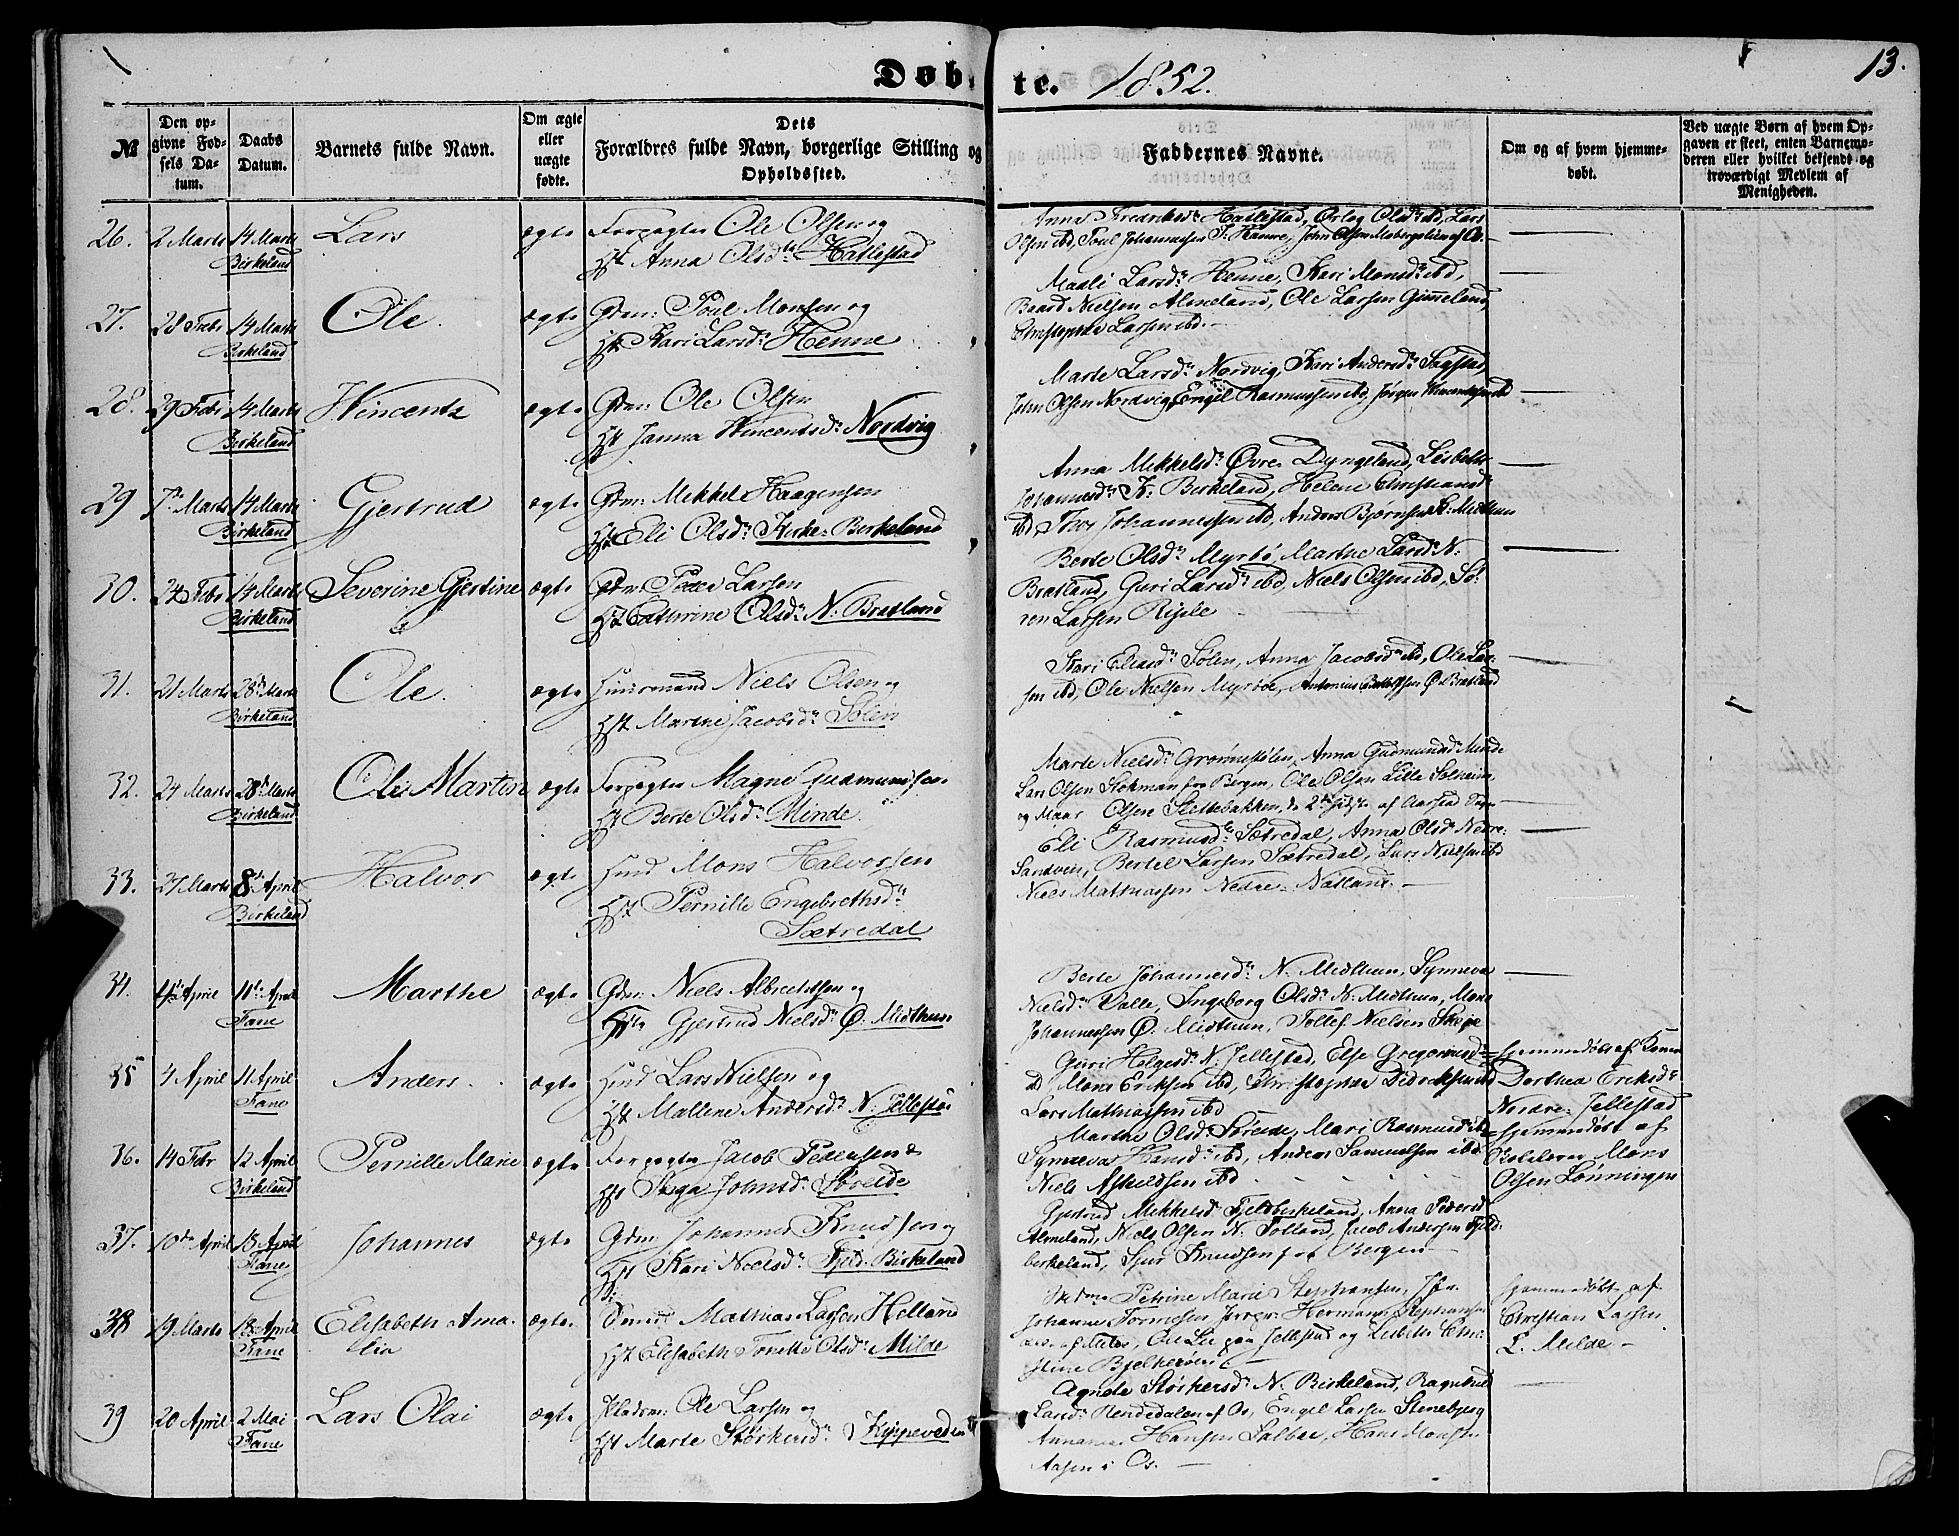 13.
Døbte. 1852.
№
Den opgivne Fødsels Datum.
Daabs Datum.
Barnets fulde Navn.
Om ægte eller uægte fødte.
Dets Forældres fulde Navn, borgerlige Stilling og Opholdssted.
Faddernes Navne.
Om og af hvem hjemmedøbt.
Ved uægte Børn af hvem Opgaven er skeet, enten Barnemoderen eller hvilket bekjendt og troværdigt Medlem af Menigheden.
26. 2 Marts 14 Marts Birkeland Lars ægte Forpagter Ole Olsen og
Hst Anna Olsdr Hatlestad
Hatlestad, Ørleg Olsdr ibd, Lars
Olsen ibd, Poul Johannesen John Olsen Mobergslien af Os.
27. 28 Febr 14 Marts Birkeland Ole. ægte Gdm: Poul Monsen og
Hst Kari Larsdr Henne
Maali Larsdr Henne, Kari Monsdr ibd,
Baard Nielsen Almeland, Ole Larsen Gimeland,
Christopher Larsen ibd.
28. 29 Febr 14 Marts Birkeland Wincents ægte Gdm: Ole Olsen
Hst Janna Wincentsdr Nordvig
Marte Larsdr Nordvig, Kari Andersdr Sagstad,
John Olsen Nordvig, Engel Rasmussen ibd, Jørgen Wincentsen ibd
29 7de Marts 14 Marts Birkeland Gjertrud ægte Gdm: Mikkel Haagensen
Hst Eli Olsdr Kirke-Birkeland
Anna Mikkelsdr Øvre Dyngeland, Lisbeth
Johannesdr K: Birkeland, Helene Christiansdr
ibd Thos Johannessen ibd, Anders Bjørnsen Ø: Midthun
30. 24 Febr 14 Marts Birkeland Severine Gjertine ægte Gdm: Peder Larsen
Hst Cathrine Olsdr N. Bratland
Berte Olsdr Myrbø Marthe Larsdr N.
Bratland, Guri Larsdr ibd, Niels Olsen ibd, Sø-
ren Larsen Risøle
31. 21 Marts 28de Marts Birkeland Ole. ægte Huusmand Niels Olsen og
Hst Marthe Jacobsdr Sølen
Kari Eliasdr Sølen, Anna Jacobsdr ibd, Ole Lar-
sen ibd, Ole Nielsen Myrbøe, Antonius Ø. Bratland
32. 24 Marts 28de Marts Birkeland Ole Martin ægte Forpagter Magne Gudmundsen
Hst Berte Olsdr Minde.
Marte Nielsdr Grønnestølen, Anna Gudmundsdr Minde
Lars Olsen Stokman fra Bergen, Ole Olsen Lille Solheim,
og Olsen Slettebakken, de 2de sidste af Aarstad Sogn
33. 27 Marts 8de April Birkeland Halvor ægte Huusmd Mons Halvorsen
Hst Pernille Engebrethsdr
Sætredal
Eli Rasmusdr Sætredal, Anna Olsdr Nedre-
Sandven, Bertel Larsen Sætredal, Lars Nielsen ibd
Niels Mathiassen Nedre-Natland. —
34. 4de April 11te April Fane Marthe ægte Gdm: Niels Albrechtsen og
Hst Gjertrud Nielsdr Ø. Midthun
Berte Johannesdr N. Midthun, Synneva
Nielsdr Valle, Ingeborg Olsdr N. Midthun, Mons
Johannessen Ø. Midthun, Tollef Nielsen Skeje
35 4 April 11 April Fane Anders. ægte Huusmd Lars Nielsen og
Hst Mallene Andersdr N. Jellestad
Guri Helgesdr N. Jellestad, Else Gregoriusdr
ibd Mons Eriksen ibd, Christopher Didriksen ibd
Lars Mathiassen ibd
Hjemmedøbt af Konen
Dorthea Eriksdr
Nordre-Jellestad
36. 14 Febr 12 April Birkeland Pernille Marie ægte Forpagter Jacob Pedersen &
Hst Siga Johnsdr Søreide
Marthe Olsdr Søreide, Mari Rasmusdr ibd
Synneva Hansdr ibd, Anders Samuelsen ibd
Niels Askildsen ibd
Hjemmedøbt af
Skolelærer Mons
Olsen Lønningen
37. 10de April 18 April Fane Johannes ægte Gdm: Johannes Knudsen og
Hst Kari Nielsdr Fjeld-Birkeland
Gjertrud Mikkelsdr Fjeldbirkeland, Anna Pedersdr
Almeland, Niels Olsen N. Tolland, Jacob Andersen Fjeld-
birkeland, Sjur Knudsen fra Bergen
38 19 Marts 18 April Fane Elisabeth Ama-
lia ægte. Mathias Larsen Helland
Hst Elisabeth Tonette Olsdr Milde
Petrine Marie Stephansen, Jfr.
Johanne Hermann Stephansen
af Milde, Ole Lie paa Jellestad og Chri-
stine Bjelkerøen
Hjemmedøbt af
Christian Larsen
L. Milde —
39 20 April 2 Mai Fane Lars Olai ægte Pladsm: Ole Larsen og
Hst Marte Størkersdr Kippeveden
Agnete Størkersdr N. Birkeland, Ragnhild
Larsdr Rendedalen af Os, Engel Larsen Stenebjerg
Hansen Salbu, Hans Monsen
Aasen i Os. —